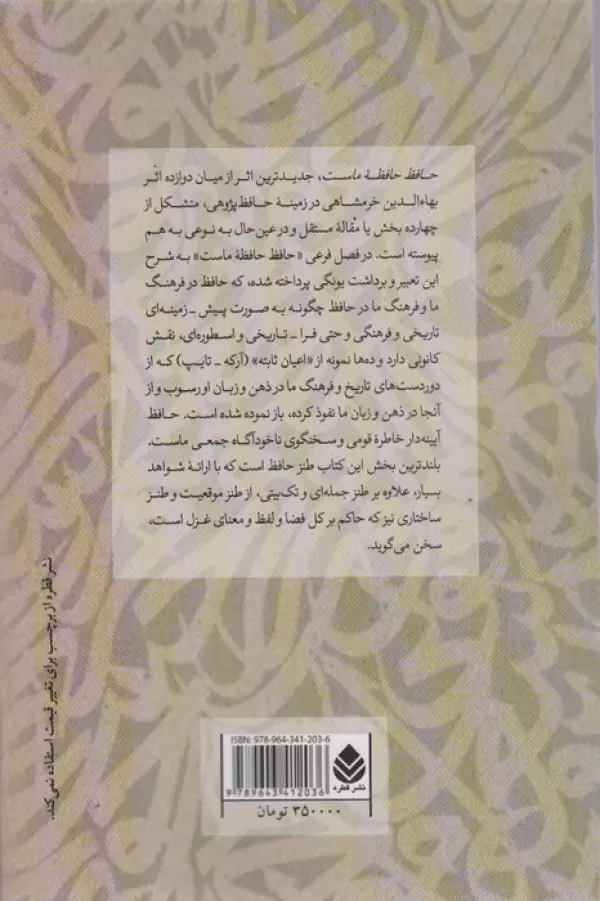 حافظ حافظهٔ ماست، جدیدترین اثر از میان دوازده اثر
بهاءالدین خرمشاهی در زمینهٔ حافظ‌پژوهی، متشکل از
چهارده بخش یا مقالهٔ مستقل و در عین‌حال به نوعی به هم
پیوسته است. در فصل فرعی «حافظ حافظهٔ ماست» به شرح
این تعبیر و برداشت یونگی پرداخته شده، که حافظ در فرهنگ
ما و فرهنگ ما در حافظ چگونه به صورت پیش ـ زمینه‌ای
تاریخی و فرهنگی و حتی فرا ـ تاریخی و اسطوره‌ای، نقش
کانونی دارد و ده‌ها نمونه از «اعیان ثابته» (آرکه ـ تایپ) که از
دوردست‌های تاریخ و فرهنگ ما در ذهن و زبان او رسوب و از
آنجا در ذهن و زبان ما نفوذ کرده، باز نموده شده است. حافظ
آیینه‌دار خاطرهٔ قومی و سخنگوی ناخودآگاه جمعی ماست.
بلندترین بخش این کتاب طنز حافظ است که با ارائهٔ شواهد
بسیار، علاوه بر طنز جمله‌ای و تک‌بیتی، از طنز موقعیت و طنز
ساختاری نیز که حاکم بر کل فضا و لفظ و معنای غزل است،
سخن می‌گوید.
نشر قطره از برچسب برای تغییر قیمت استفاده نمی‌کند.
ISBN: 978-964-341-203-6
9 789643 412036
نشر قطره
۳۵۰۰۰۰ تومان